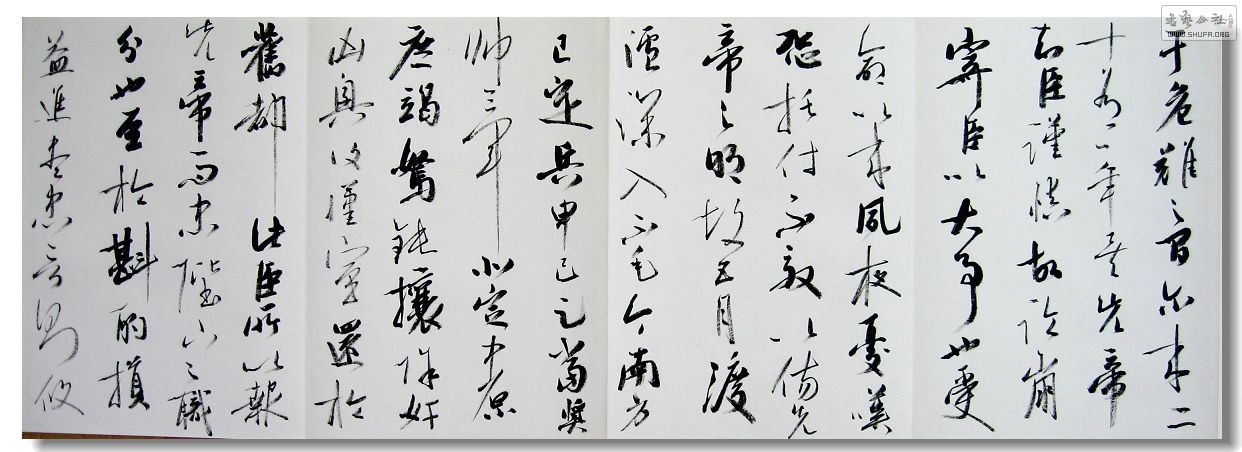 于危難之間尔来二
十有一年矣先帝
知臣謹慎故臨崩
寄臣以大事也受
命以来夙夜憂嘆
恐托付不效以傷先
帝之明故五月渡
瀘深入不毛今南方
已定兵甲已足當獎
帅三軍北定中原
庶竭駑鈍攘除奸
凶興復漢室還於
舊都此臣所以報
先帝而忠陛下之職
分也至於斟酌損
益進盡忠言則攸
书艺公社
WWW.SHUFA.ORG